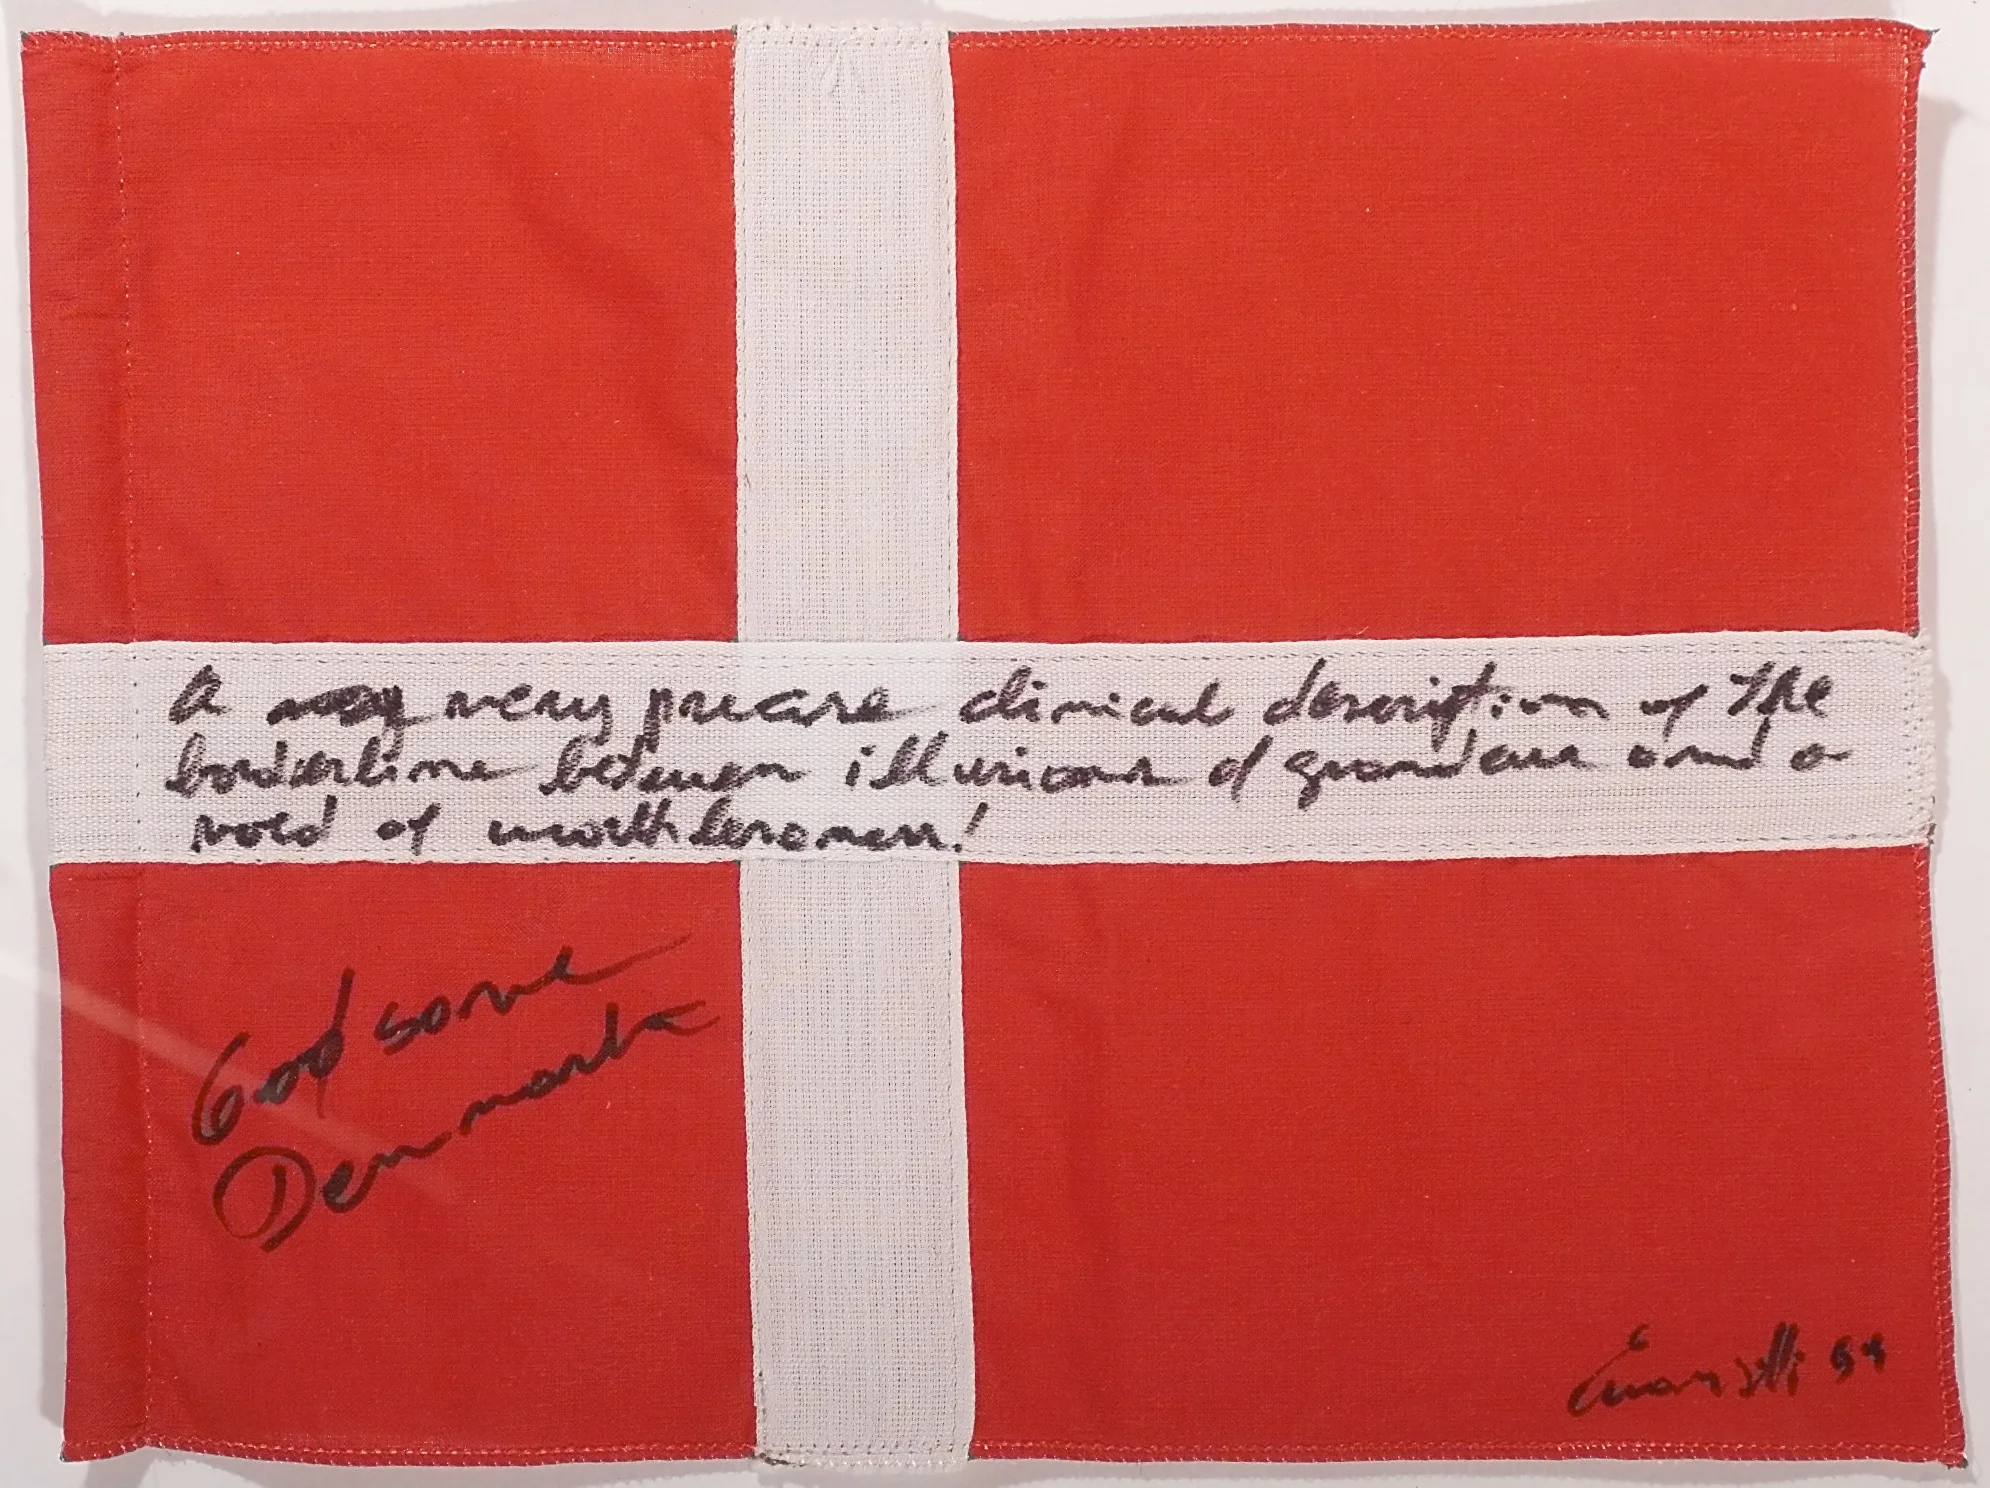 A very very precise clinical description of the
borderline between illusions of grandeur and a
void of worthlessness!
God save
Denmark